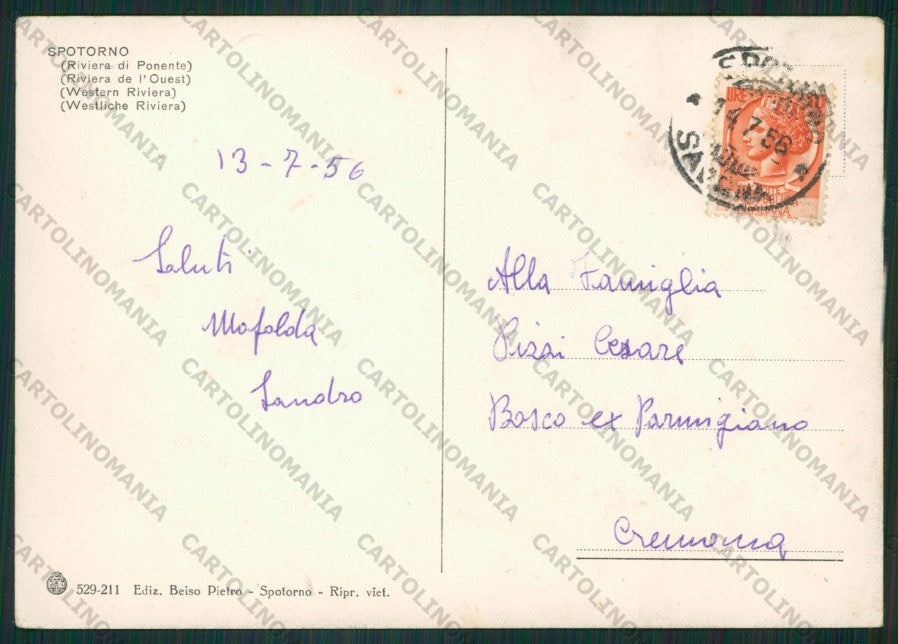 SPOTORNO
(Riviera di Ponente)
(Riviera de l'Ouest)
(Western Riviera)
(Westliche Riviera)
13-7-56
Saluti
Mafalda
Sandro
529-211 Ediz. Beiso Pietro - Spotorno - Ripr. viet.
LIRE
14.7.56
Alla Famiglia
Pizzi Cesare
Bosco ex Parmigiano
Cremona
CARTOLINOMANIA